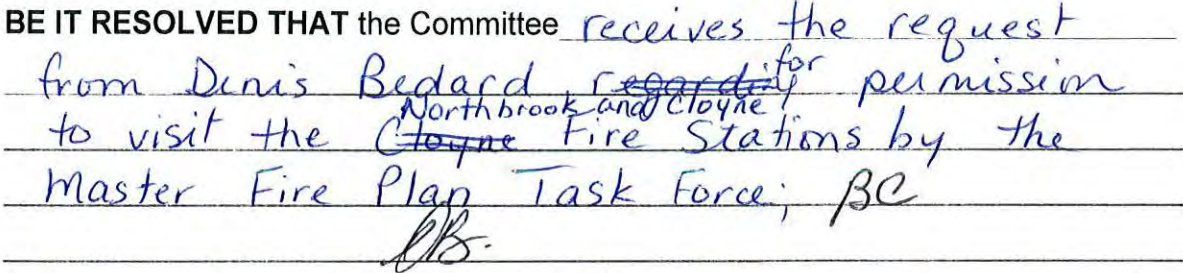 BE IT RESOLVED THAT the Committee receives the request
from Denis Bedard, regarding for permission
to visit the Cloyne Northbrook and Cloyne Fire Stations by the
Master Fire Plan Task Force; BC